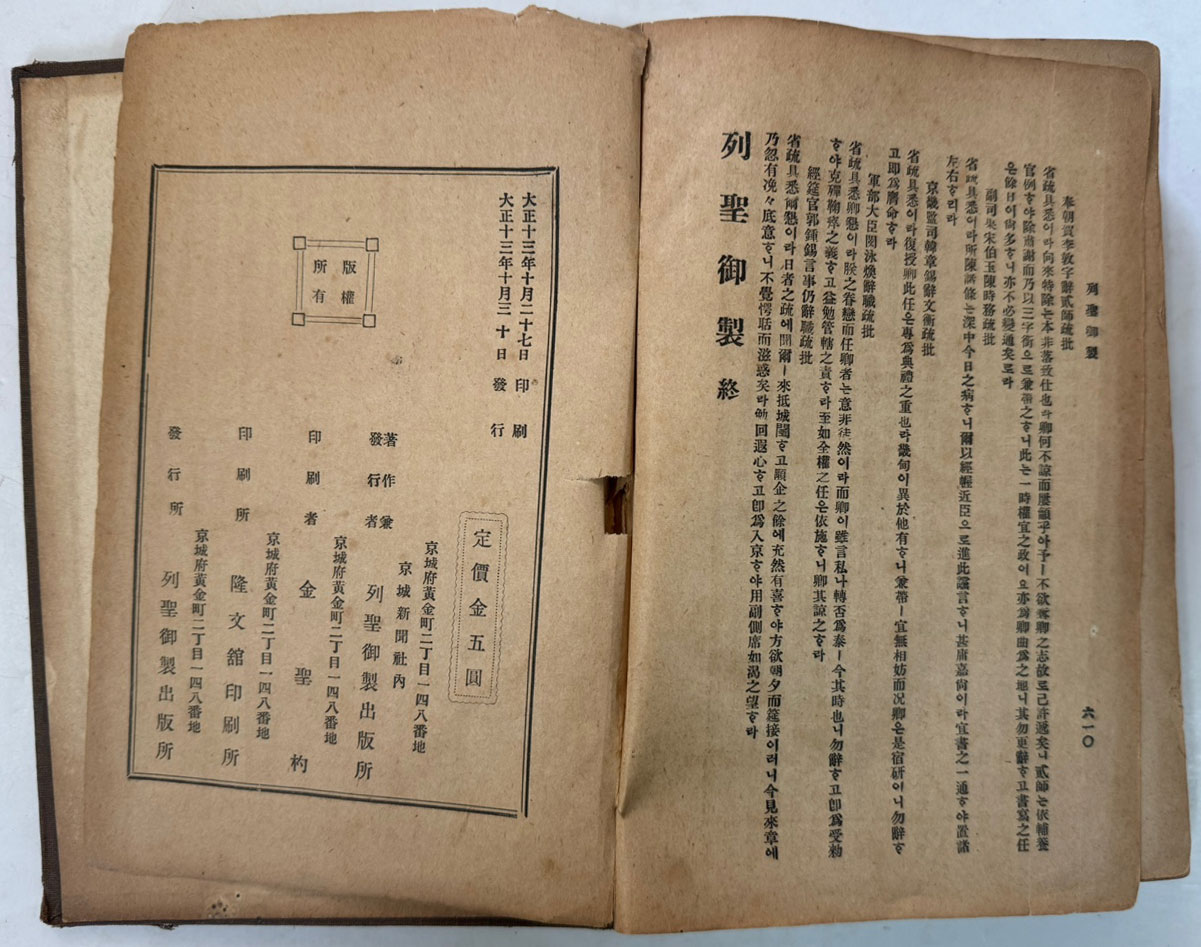 列聖御製
六一〇
奉朝賀李敦宇辭貳師疏批
省疏具悉이라向來特除는本非落致仕也라卿何不諒而屢籲乎아予ㅣ不欲奪卿之志故로已許遞矣니貳師는依輔養
官例ᄒᆞ야除肅謝而乃以三字銜으로兼帶之ᄒᆞ니此는一時權宜之政이오亦爲卿曲爲之地니其勿更辭ᄒᆞ고書寫之任
은餘日이尙多ᄒᆞ니亦不必變通矣로라
副司果宋伯玉陳時務疏批
省疏具悉이라所陳諸條는深中今日之病ᄒᆞ니爾以經幄近臣으로進此讜言ᄒᆞ니甚庸嘉尙이라宜書之一通ᄒᆞ야置諸
左右ᄒᆞ리라
京畿監司韓章錫辭文衡疏批
省疏具悉이라復授卿此任은專爲典禮之重也라畿甸이異於他有ᄒᆞ니兼帶ㅣ宜無相妨而况卿은是宿硏이니勿辭ᄒᆞ
고即爲膺命ᄒᆞ라
軍部大臣閔泳煥辭職疏批
省疏具悉卿懇이라朕之眷戀而任卿者는意非徒然이라而卿이雖言私나轉否爲泰ㅣ今其時也니勿辭ᄒᆞ고卽爲受勅
ᄒᆞ야克殫鞠瘁之義ᄒᆞ고益勉管轄之責ᄒᆞ라至如全權之任은依施ᄒᆞ니卿其諒之ᄒᆞ라
經筵官郭鍾錫言事仍辭職疏批
省疏具悉爾懇이라日者之疏에聞爾ㅣ來抵城闉ᄒᆞ고顒企之餘에充然有喜ᄒᆞ야方欲朝夕而筵接이러니今見來章에
乃忽有浼々底意ᄒᆞ니不覺愕眙而滋惑矣라斯回遐心ᄒᆞ고卽爲入京ᄒᆞ야用副側席如渴之望ᄒᆞ라
列聖御製 終
大正十三年十月二十七日印刷
大正十三年十月三十日發行
版權
所有
定價金五圓
京城府黃金町二丁目一四八番地
京城新聞社內
著作兼
發行者 列聖御製出版所
京城府黃金町二丁目一四八番地
印刷者 金聖杓
京城府黃金町二丁目一四八番地
印刷所 隆文舘印刷所
京城府黃金町二丁目一四八番地
發行所 列聖御製出版所